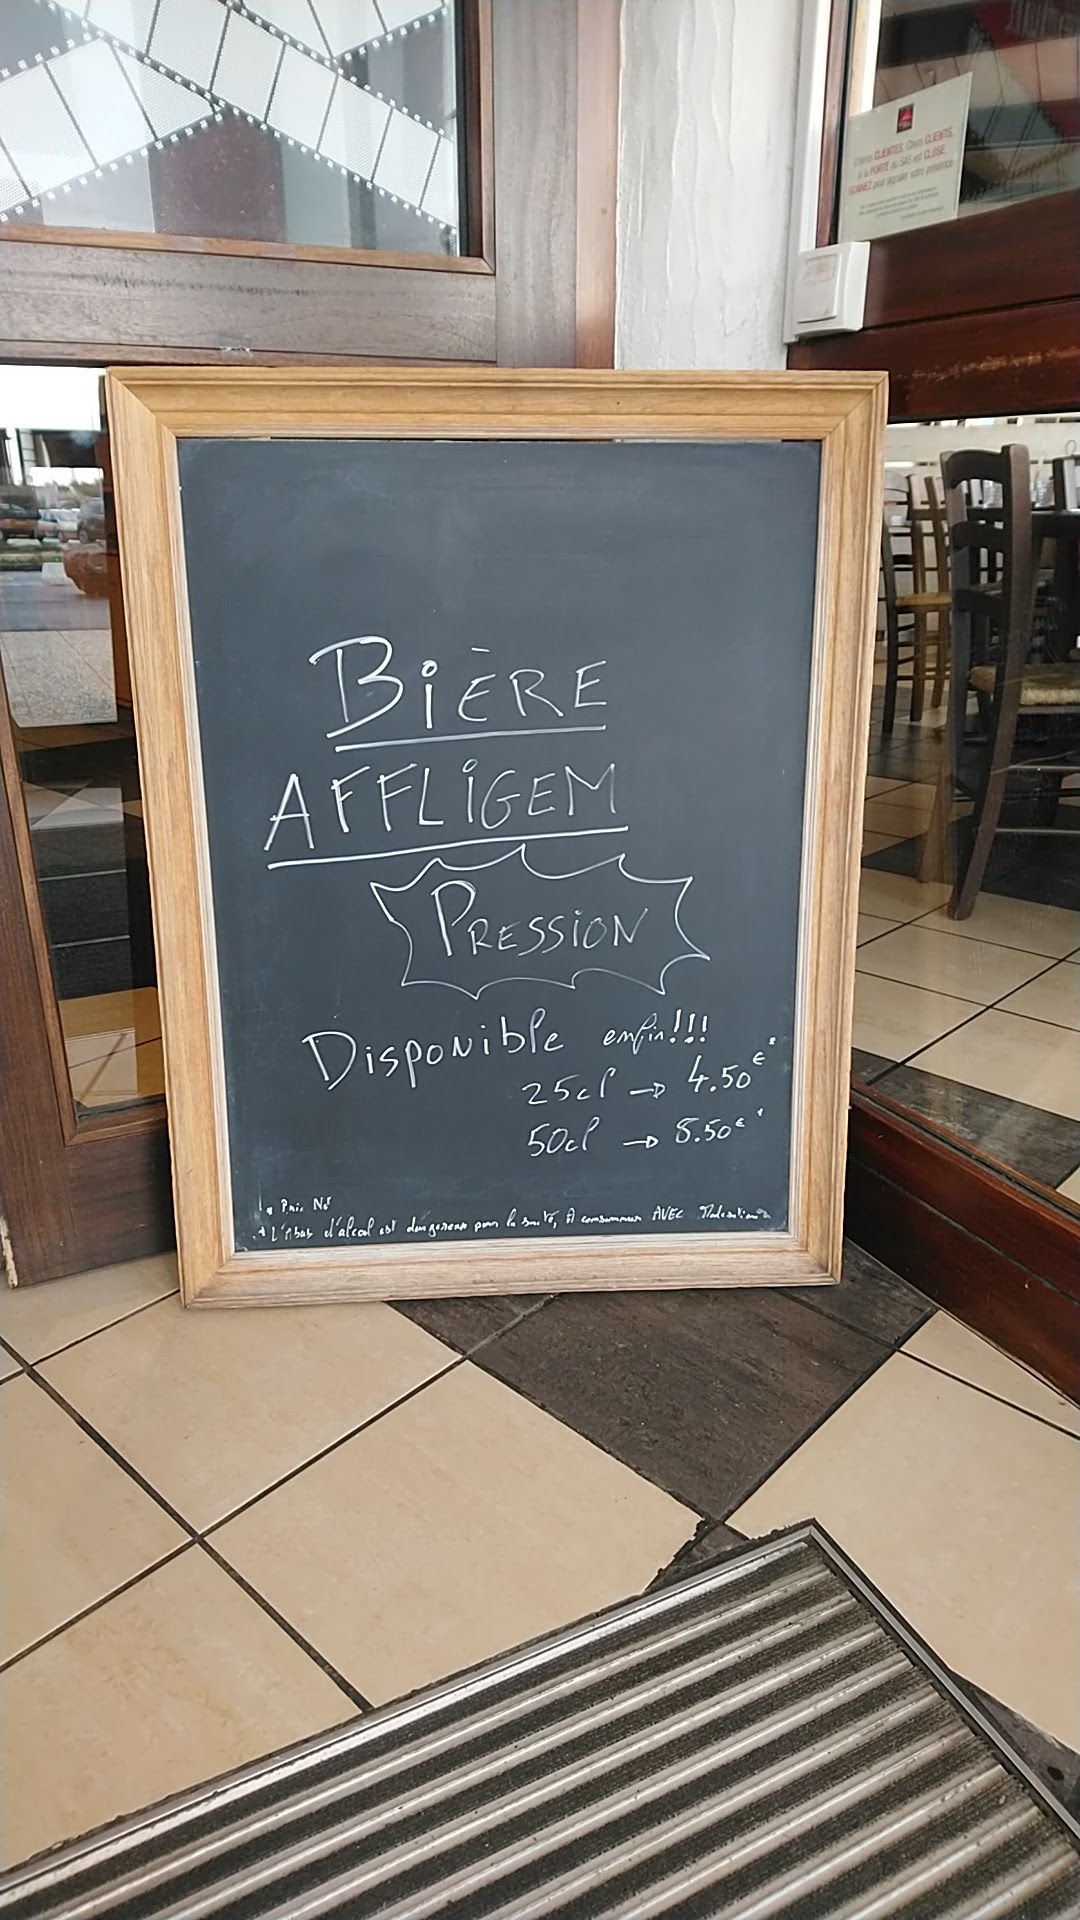 Chères CLIENTES, Chers CLIENTS,
si la PORTE du SAS est CLOSE,
SONNEZ pour signaler votre présence.
BiÈRE
AFFLiGEM
PRESSiON
Disponible enfin!!!
25cl → 4.50€*
50cl → 8.50€*
* Prix Net
* L'Abus d'alcool est dangereux pour la santé, A consommer AVEC Modération